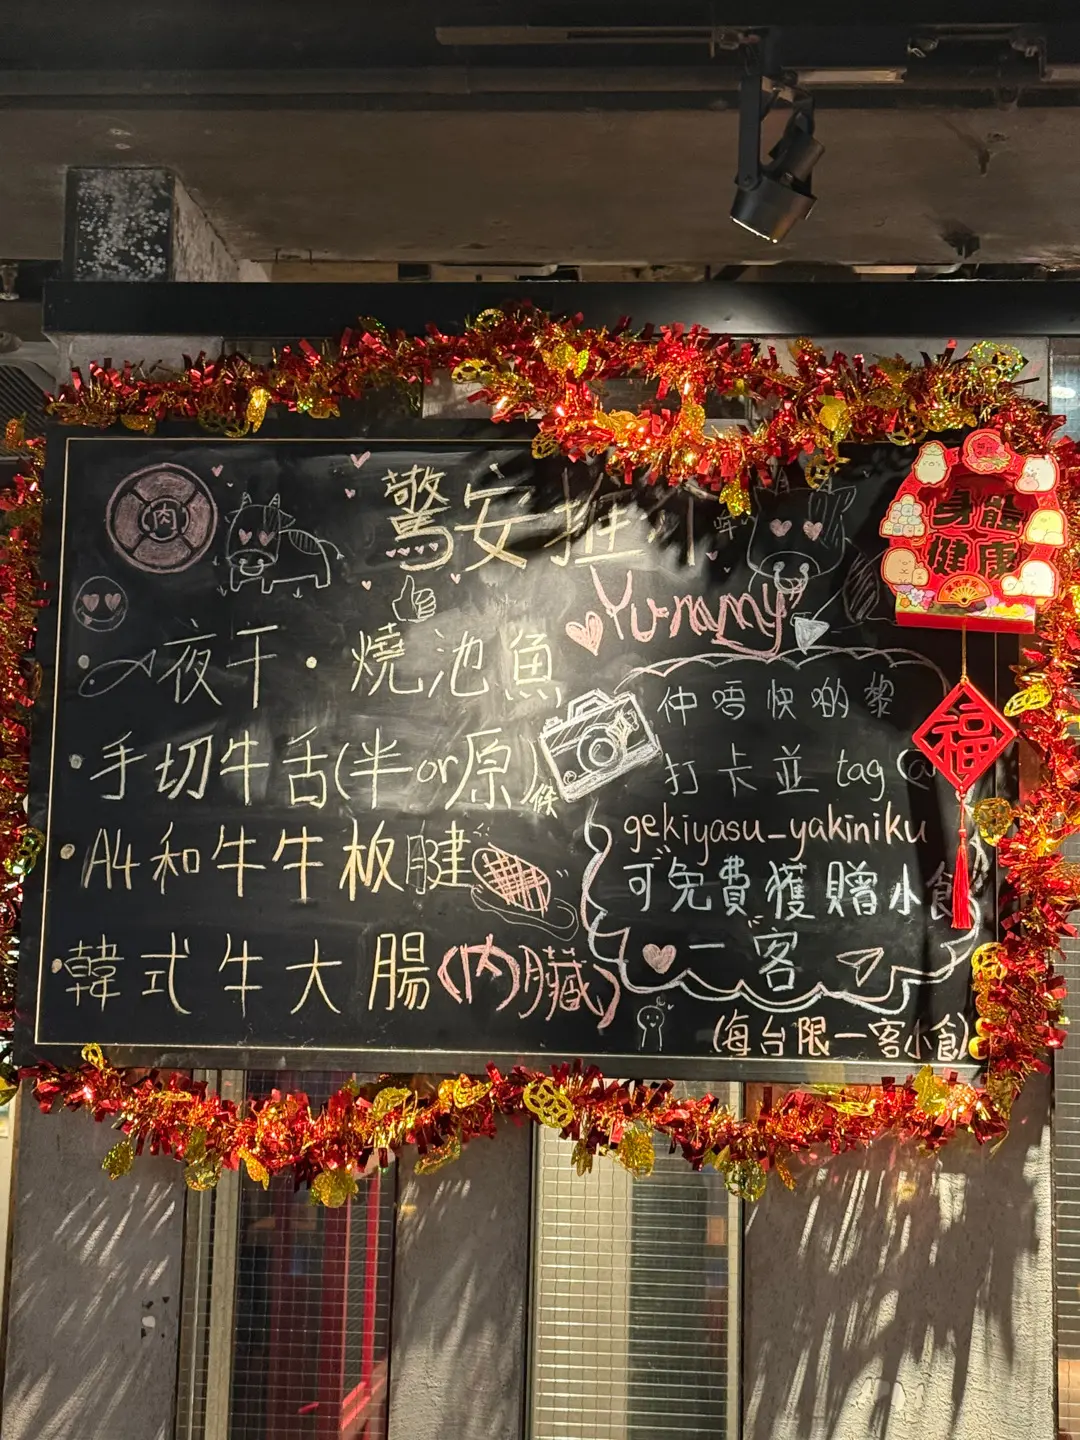 肉
驚安推介
Yummy
夜干·燒池魚
·手切牛舌(半or原條)
·A4和牛牛板腱
·韓式牛大腸(內臟)
仲唔快啲黎
打卡並tag@
gekiyasu_yakiniku
可免費獲贈小食
一客
(每台限一客小食)
身體
健康
福